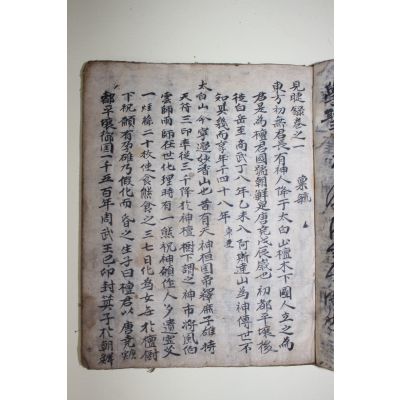 見睫錄卷之一
東方初無君長有神人降于太白山檀木下國人立之為
君是為檀君國號朝鮮是唐堯戊辰歲也初都平壤後
徙白岳至商武丁八年乙未入阿斯達山為神傳世不
知其幾而享年千四十八年 東史
太白山今寧邊妙香山也昔有天神桓因帝釋庶子雄持
天符三印率徒三千降於神檀樹下謂之神市將風伯
雲師雨師在世化理時有一熊祝神願作人身遺靈艾
一炷蒜二十枚使食熊食之三七日化為女每於檀樹
下祝願有孕雄乃假化而昏之生子曰檀君以唐堯
都平壤御國一千五百年周武王己卯封箕子於朝鮮